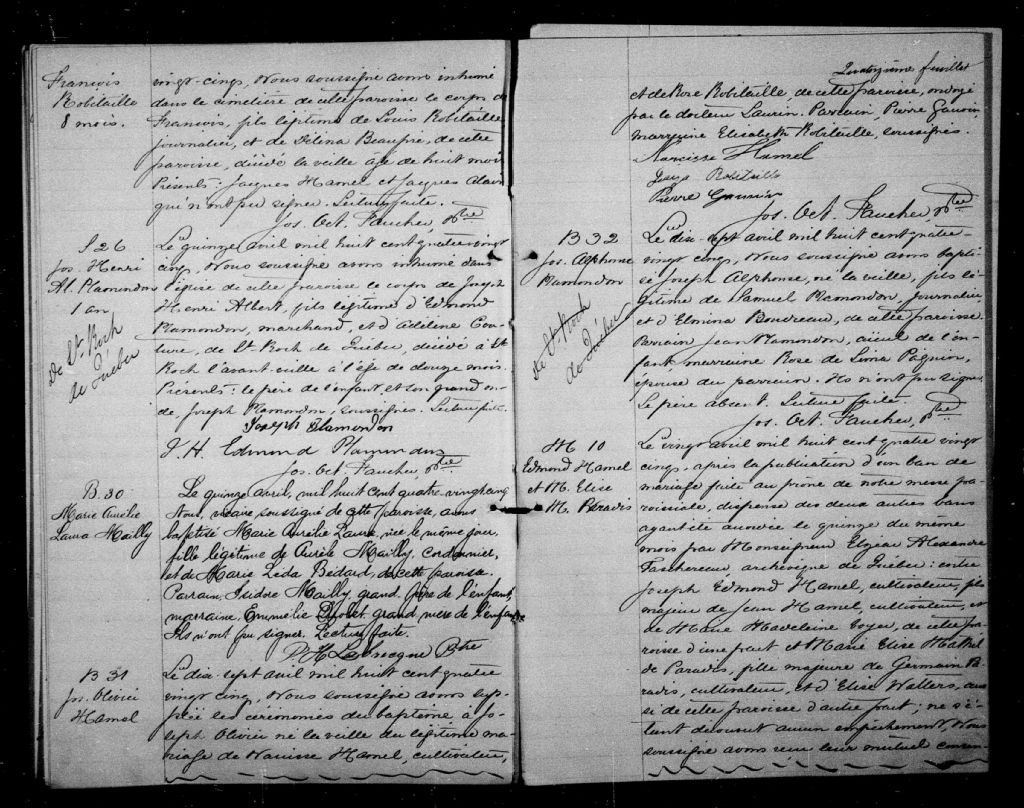 François
Robitaille
8 mois.
vingt-cinq, Nous soussigné avons inhumé
dans le cimetière de cette paroisse le corps de
François, fils légitime de Louis Robitaille
journalier, et de Délina Beaupré, de cette
paroisse, décédé la veille age de huit mois
Présents: Jacques Hamel et Jacques
qui n'ont pu signer. Lecture faite.
Jos. Oct. Faucher, Ptre
S 26
Jos. Henri
Al. Plamondon
1 an
De St. Roch
de Québec
Le quinze avril mil huit cent quatre-vingt
cinq, Nous soussigné avons inhumé dans
l'église de cette paroisse le corps de Joseph
Henri Albert, fils légitime d'Edmond
Plamondon, marchand, et d'Adéline Cou-
ture, de St. Roch de Québec, décédé à St
Roch l'avant-veille à l'age de douze mois.
Présents: le père de l'enfant et son grand on-
cle, Joseph Plamondon, soussignés. Lecture faite.
Joseph Plamondon
J. H. Edmond Plamondon
Jos. Oct. Faucher, Ptre
B. 30
Marie Aurélie
Laura Mailly
Le quinze avril, mil huit cent quatre-vingt cinq
Nous, vicaire soussigné de cette paroisse, avons
baptisé Marie Aurélie Laura, née le même jour,
fille légitime de Aurèle Mailly, cordonnier,
et de Marie Léda Bédard, de cette paroisse.
Parrain, Isidore Mailly, grand père de l'enfant,
marraine, Emmélie Drolet, grand mère de l'enfant.
Ils n'ont pu signer. Lecture faite.
Ptre
B 31
Jos. Olivier
Hamel
Le dix-sept avril mil huit cent quatre
vingt cinq, Nous soussigné avons sup-
pléé les cérémonies du baptême à Jo-
seph Olivier né la veille du légitime ma-
riage de Narcisse Hamel, cultivateur,
Quatorzième feuillet
et de Rose Robitaille de cette paroisse, ondoyé
par le docteur Laurin. Parrain, Pierre Gauvin
marraine Elisabeth Robitaille, soussignés.
Narcisse Hamel
Robitaille
Pierre Gauvin
Jos. Oct. Faucher, Ptre
B 32
Jos. Alphonse
Plamondon
De St. Roch
de Québec
Le dix-sept avril mil huit cent quatre-
vingt cinq, Nous soussigné avons bapti-
sé Joseph Alphonse, né la veille, fils lé-
gitime de Samuel Plamondon, journalier
et d'Elmina Boudreau, de cette paroisse.
Parrain Jean Plamondon, aïeul de l'en-
fant marraine Rose de Lima Paquin,
épouse du parrain. Ils n'ont pu signer.
Le père absent. Lecture faite.
Jos. Oct. Faucher, Ptre
M 10
Edmond Hamel
et M. Elise
M. Paradis
Le vingt avril mil huit cent quatre vingt
cinq, après la publication d'un ban de
mariage faite au prône de notre messe pa-
roissiale, dispense des deux autres bans
ayant été accordée le quinze du même
mois par Monseigneur Elzéar Alexandre
Taschereau archevêque de Québec: entre
Joseph Edmond Hamel, cultivateur, fils
majeur de Jean Hamel, cultivateur, et
de Marie Madeleine Voyer, de cette paroisse
d'une part et Marie Elise Mathil-
de Paradis, fille majeure de Germain Pa-
radis, cultivateur, et d'Elise Walters, aus-
si de cette paroisse d'autre part; ne s'é-
tant découvert aucun empêchement, Nous
soussigné avons reçu leur mutuel consen-